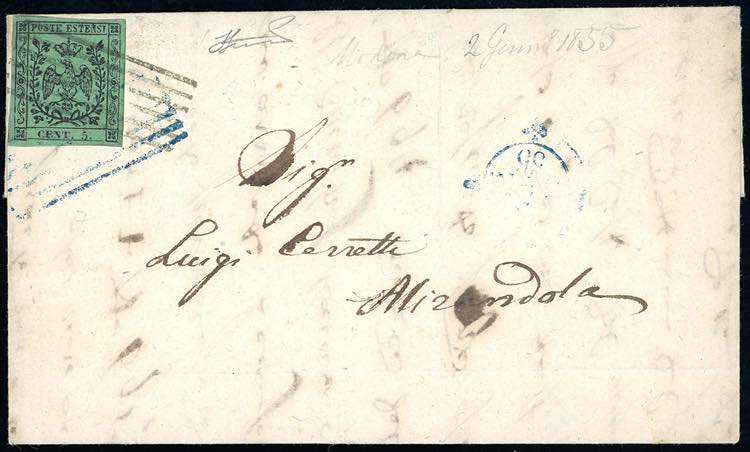 POSTE ESTENSI
CENT. 5.
Modena 2 Genn.º 1855
55
Sig.r
Luigi Cerretti
Mirandola